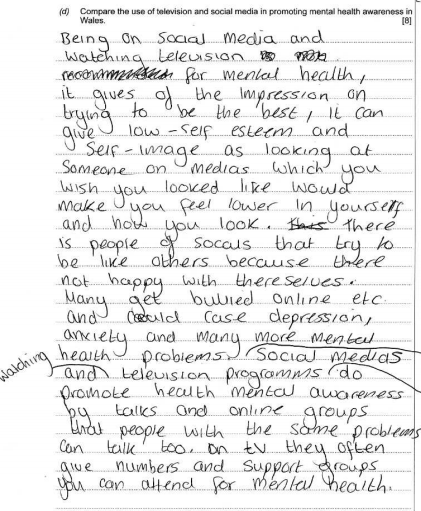 (d) Compare the use of television and social media in promoting mental health awareness in
Wales.
[8]
Being on Social Media and
watching television
for mental health,
it gives of the Impression on
trying to be the best, it can
give low-self esteem and
self-image as looking at
Someone on medias which you
wish you looked like would
make you feel lower in yourself
and how you look. this there
is people of socials that try to
be like others because there
not happy with thereselves.
Many get bullied online etc.
and could case depression,
anxiety and many more mental
health problems. Social medias
watching
and television programms do
promote health mental awareness
by talks and online groups
that people with the same problems
can talk too. on tv they often
give numbers and support groups
you can attend for mental health.